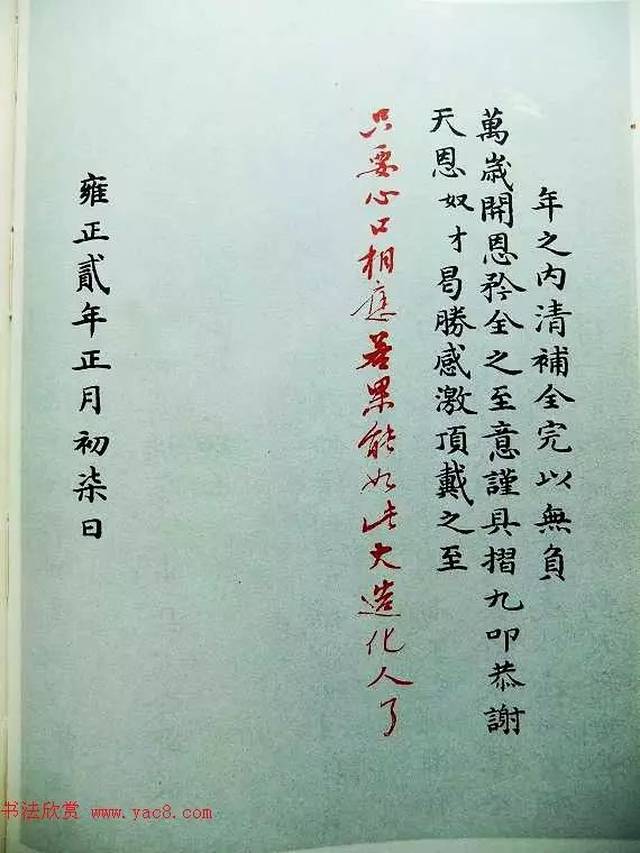 年之內清補全完以無負
萬歲開恩矜全之至意謹具摺九叩恭謝
天恩奴才曷勝感激頂戴之至
只要心口相應若果能如此大造化人了
雍正貳年正月初柒日
书法欣赏 www.yac8.com